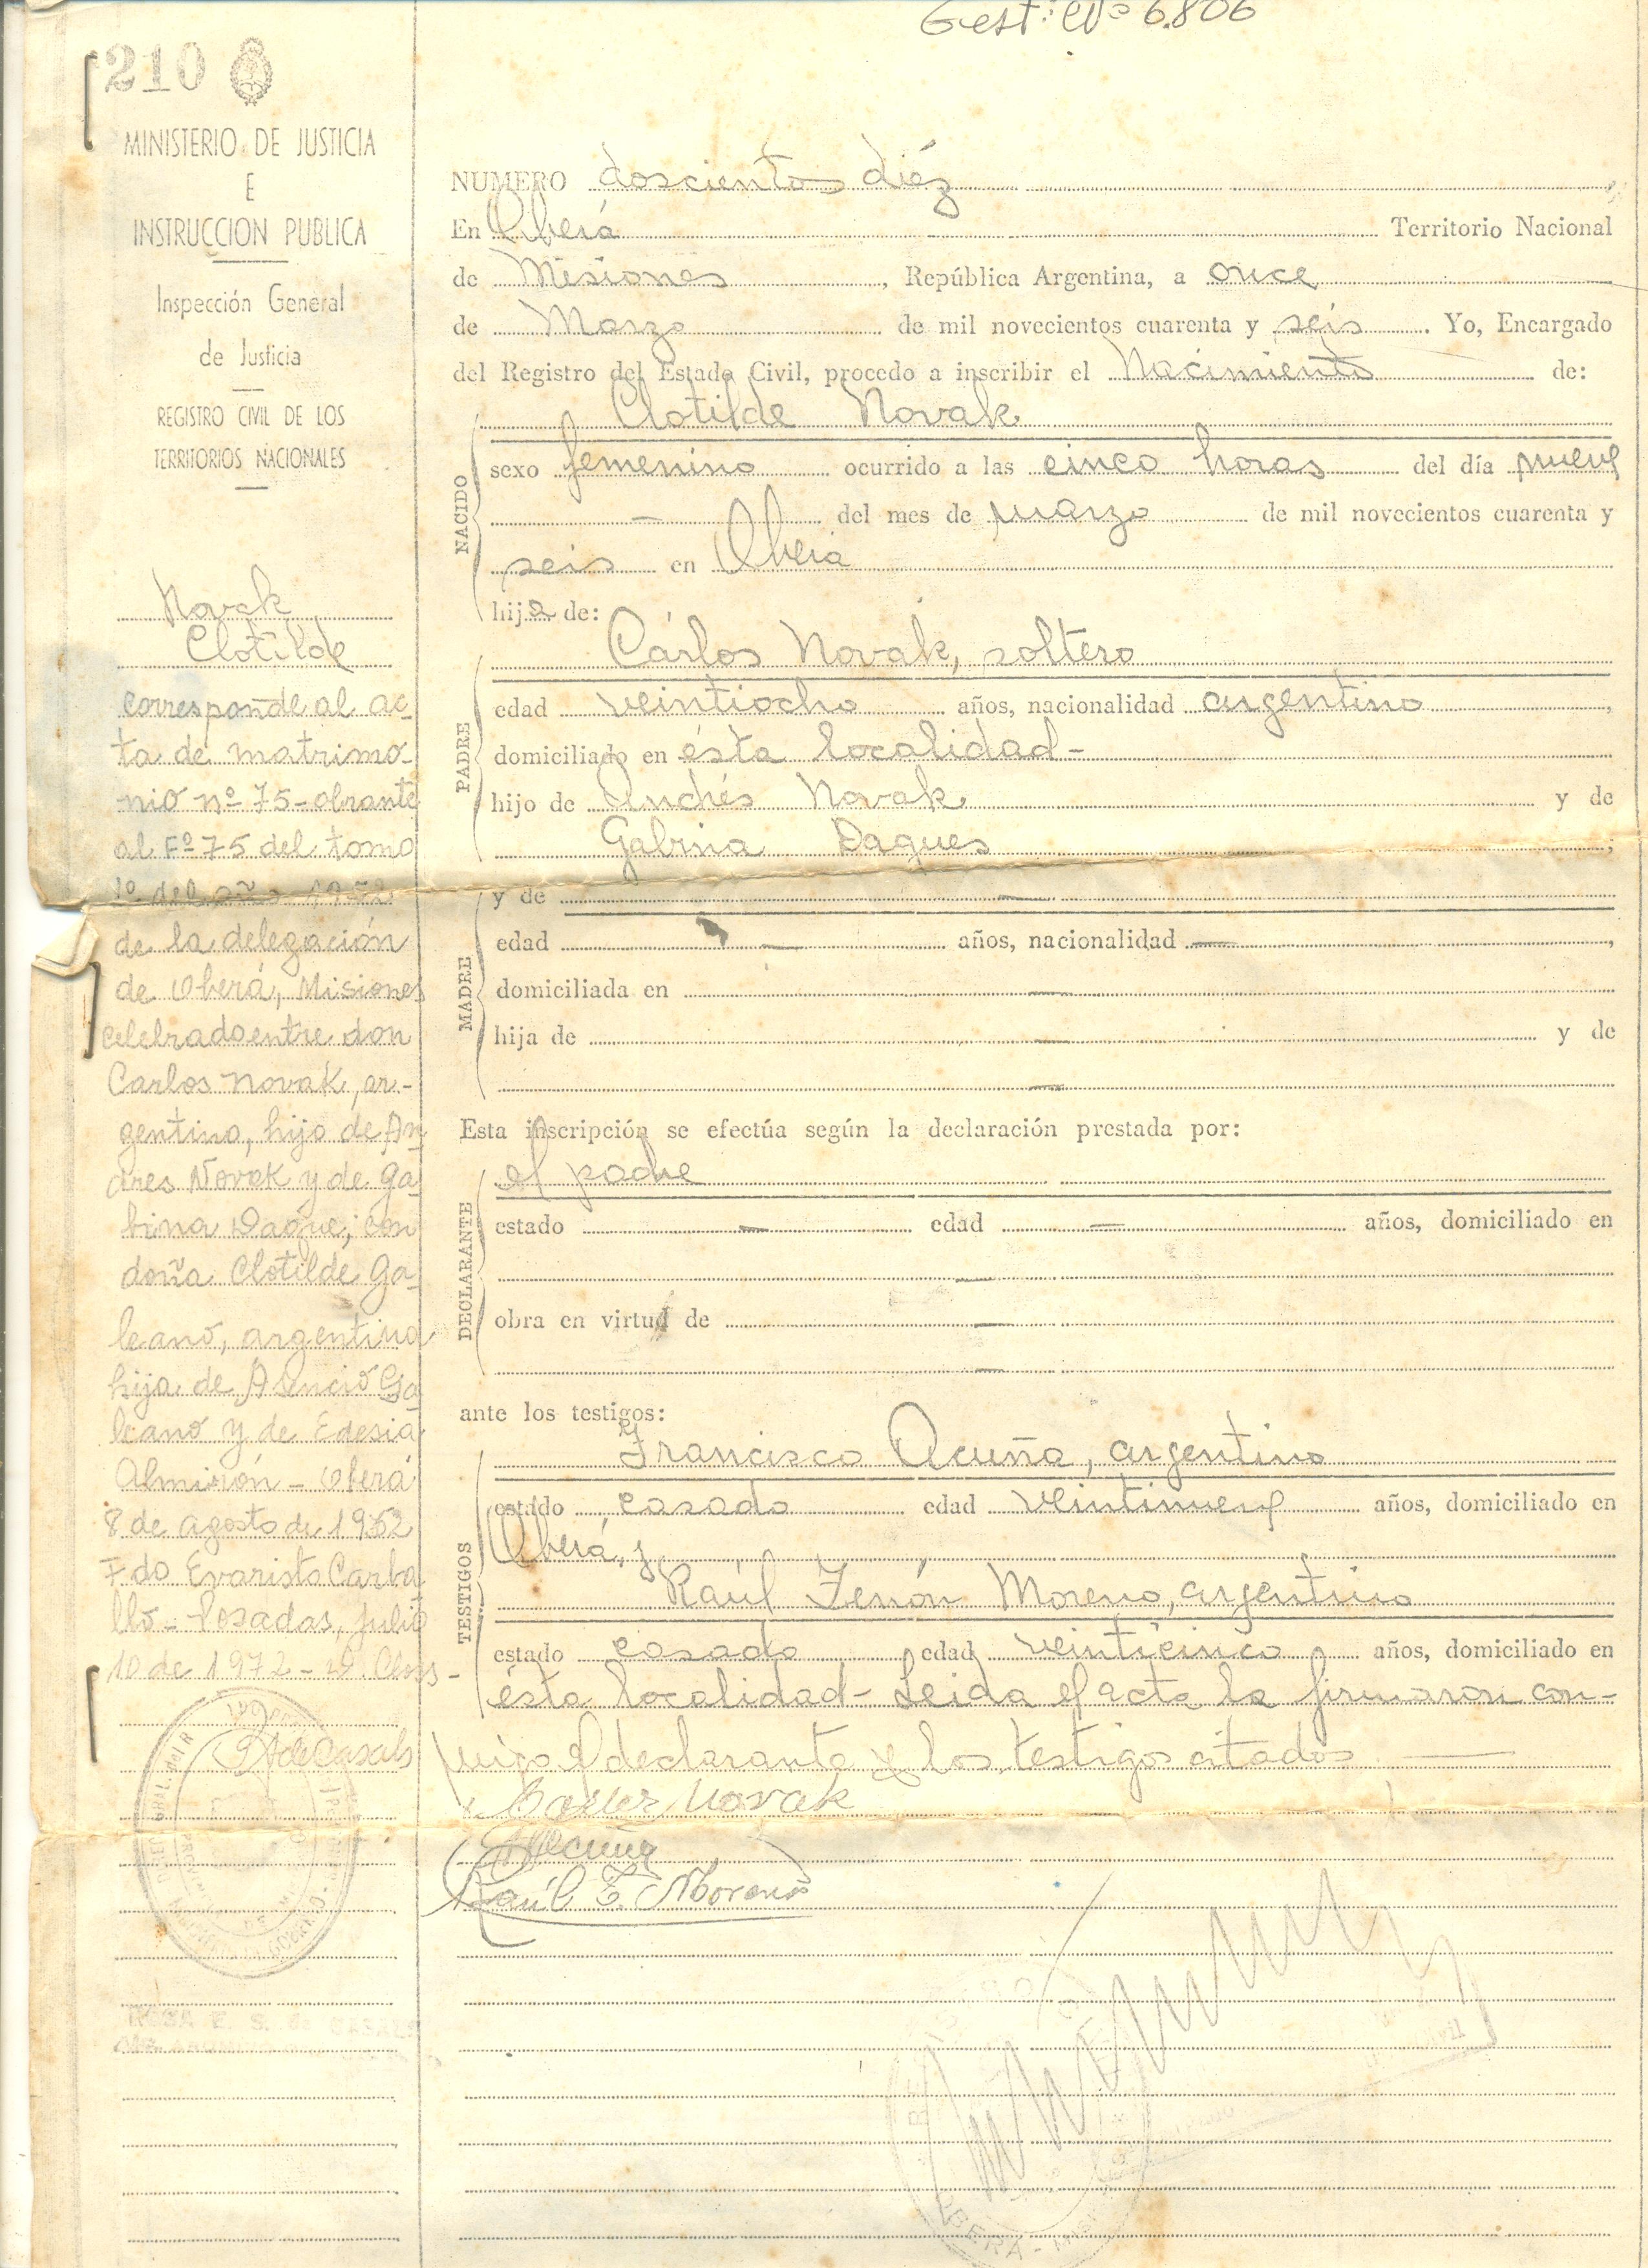 Gest: Nº 6.806
210
MINISTERIO DE JUSTICIA
E
INSTRUCCION PUBLICA
Inspección General
de Justicia
REGISTRO CIVIL DE LOS
TERRITORIOS NACIONALES
Novak
Clotilde
corresponde al ac-
ta de matrimo-
nio nº 75 - obrante
al Fº 75 del tomo
1º del año 1952
de la delegación
de Oberá, Misiones
celebrado entre don
Carlos Novak, ar-
gentino, hijo de An
dres Novak y de Ga
bina Daque; con
doña Clotilde Ga-
leano, argentina
hija de Asunció Ga
leano y de Edesia
Almirón - Oberá
8 de agosto de 1952
Fdo Evaristo Carba
llo - Posadas, julio
10 de 1972 -
NUMERO doscientos diéz
En Oberá Territorio Nacional
de Misiones, República Argentina, a once
de Marzo de mil novecientos cuarenta y seis. Yo, Encargado
del Registro del Estado Civil, procedo a inscribir el Nacimiento de:
NACIDO
Clotilde Novak
sexo femenino ocurrido a las cinco horas del día nueve
— del mes de marzo de mil novecientos cuarenta y
seis en Oberá
hija de:
PADRE
Cárlos Novak, soltero
edad veintiocho años, nacionalidad argentino,
domiciliado en ésta localidad-
hijo de Andrés Novak y de
Gabina Daques;
MADRE
y de —
edad — años, nacionalidad —,
domiciliada en —
hija de — y de
—
Esta inscripción se efectúa según la declaración prestada por:
DECLARANTE
el padre
estado — edad — años, domiciliado en
—
obra en virtud de —
—
ante los testigos:
TESTIGOS
Francisco Acuña, argentino
estado casado edad veintinueve años, domiciliado en
Oberá, y
Raúl Zenón Moreno, argentino
estado casado edad veinticinco años, domiciliado en
ésta localidad - Leida el acta la firmaron con-
migo el declarante y los testigos citados —
Novak
Acuña
Raúl Z. Moreno
OBERÁ -